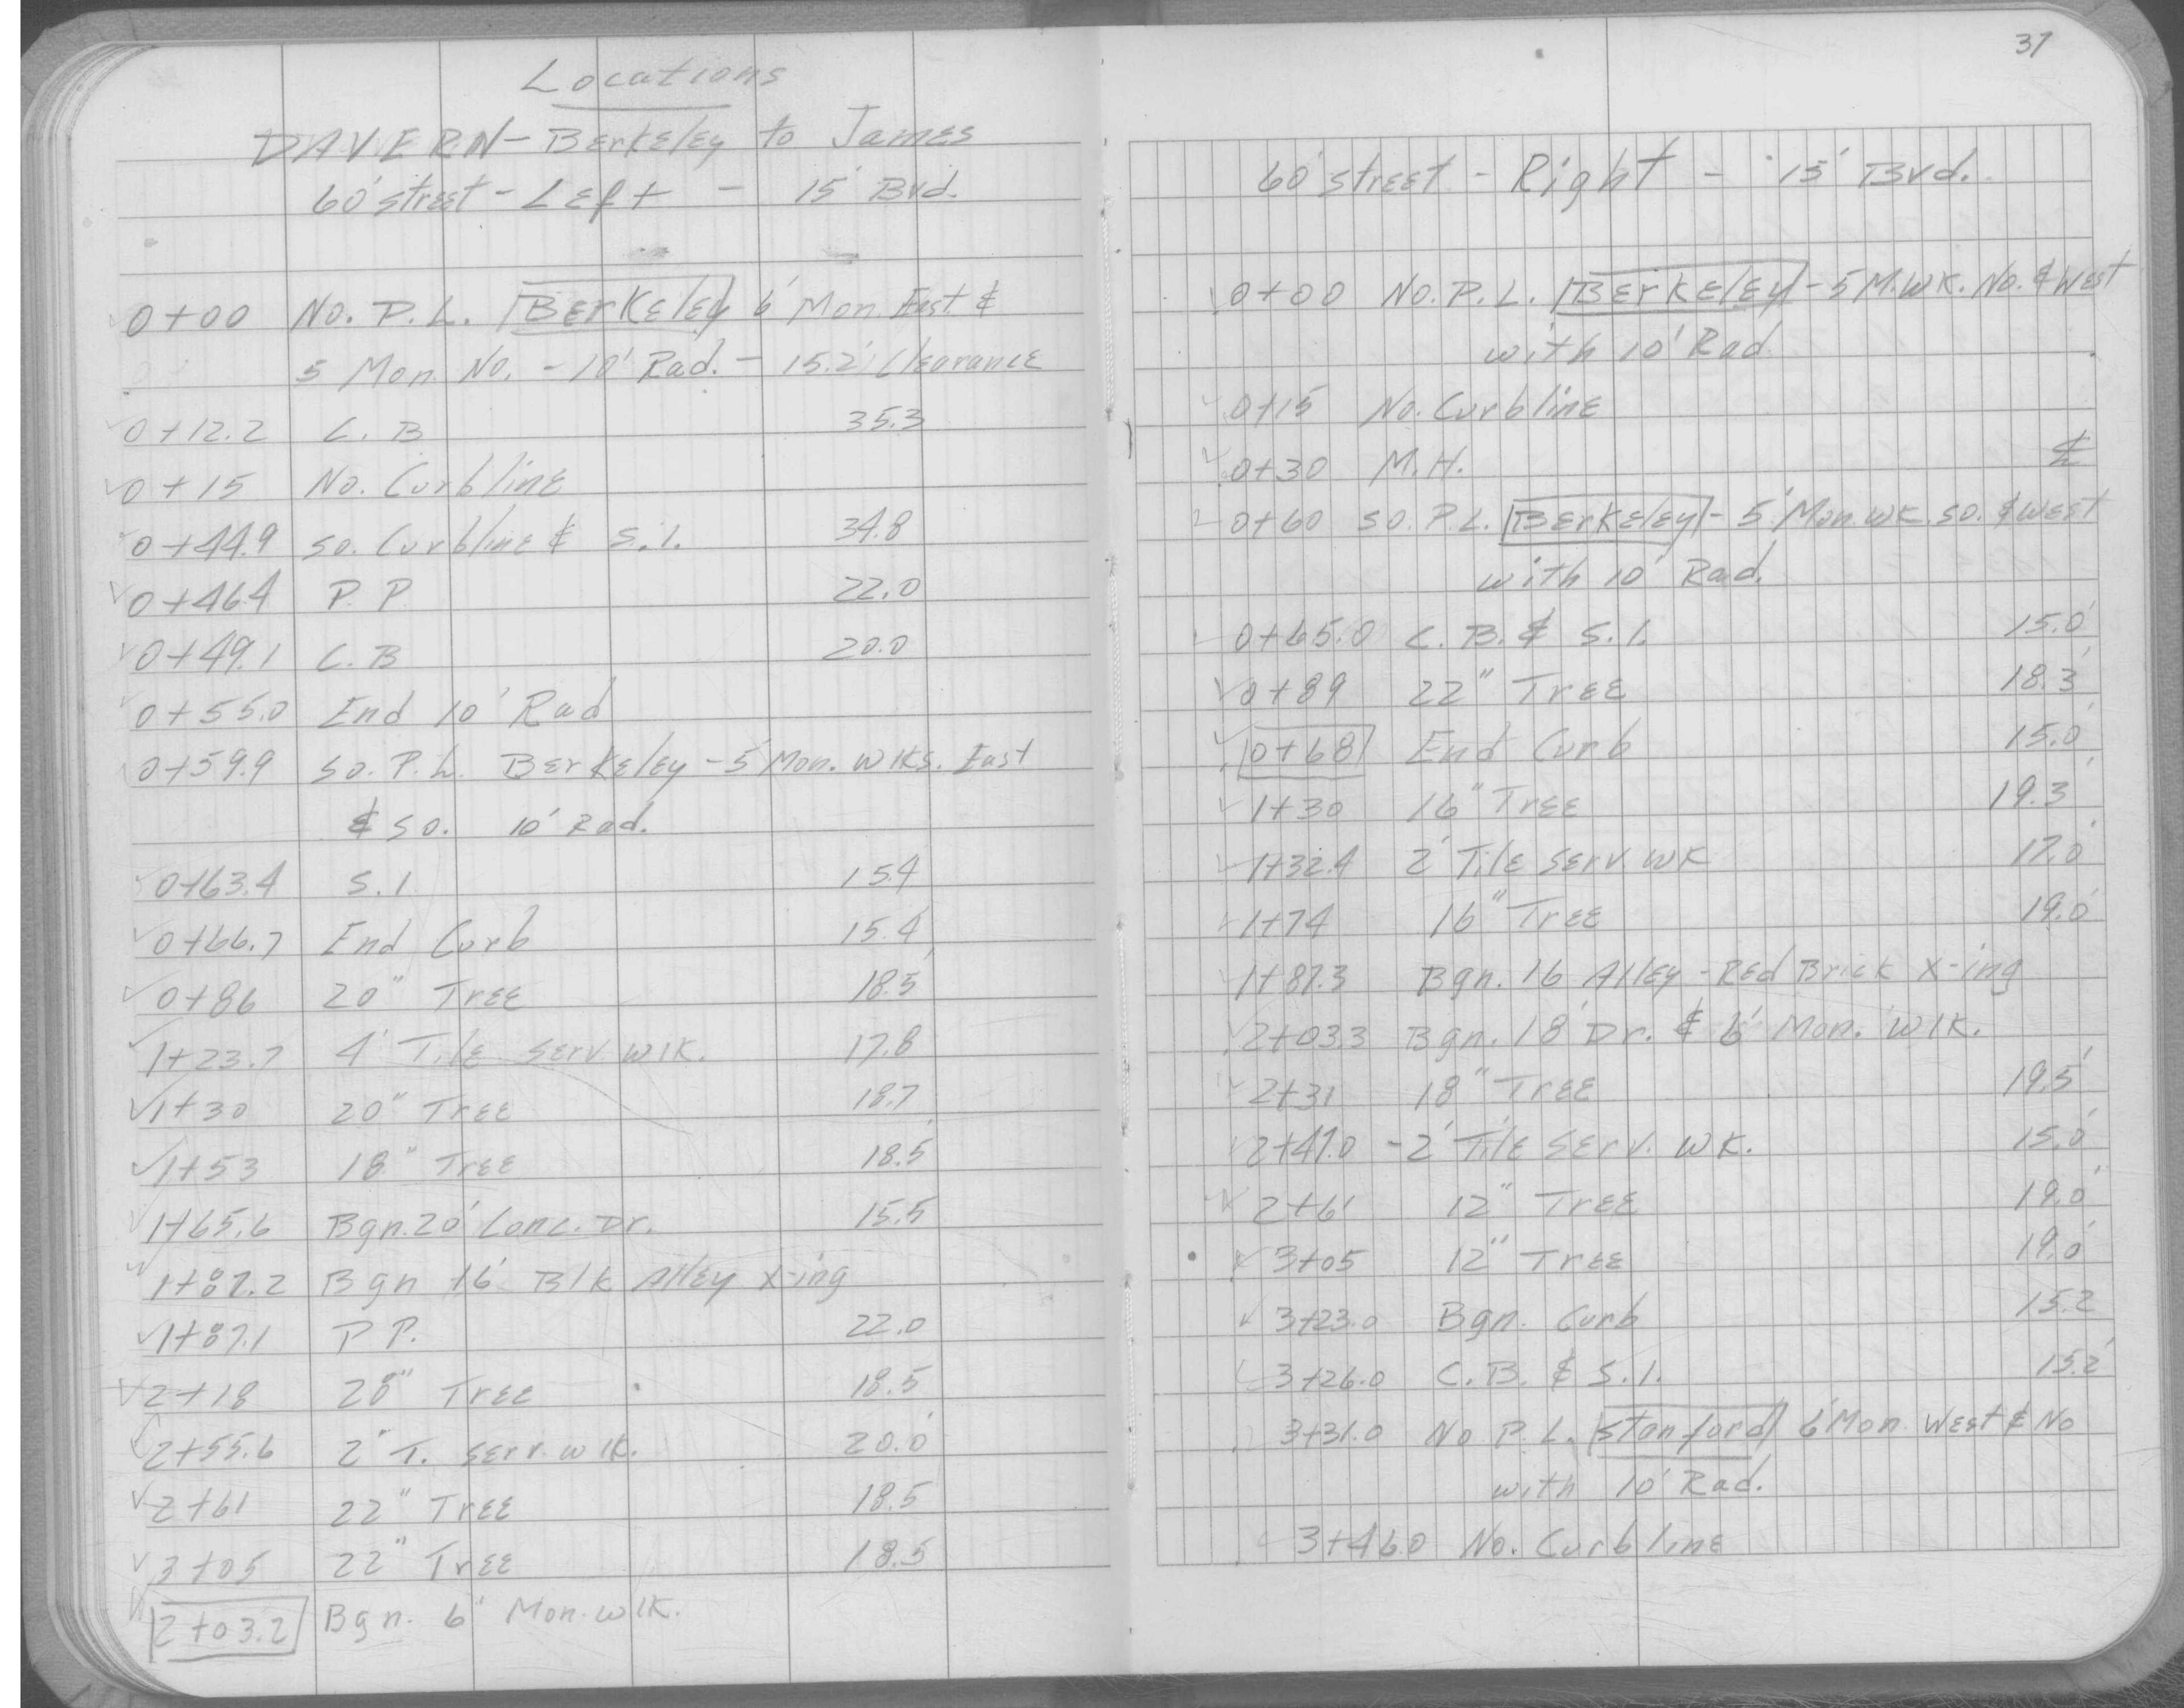 Locations
DAVERN - Berkeley to James
60' street - Left - 15' Bvd.
0+00 No. P.L. Berkeley 6' Mon East &
5 Mon. No. - 10' Rad. - 15.2' Clearance
0+12.2 C.B 35.3
0+15 No. Curbline
0+44.9 So. Curbline & S.I. 34.8
0+46.4 P.P. 22.0
0+49.1 C.B 20.0
0+55.0 End 10' Rad
0+59.9 So. P.L. Berkeley - 5' Mon. Wlks. East
& So. 10' Rad.
0+63.4 S.I 15.4
0+66.7 End Curb 15.4
0+86 20" Tree 18.5'
1+23.7 4' Tile Serv. Wlk. 17.8
1+30 20" Tree 18.7
1+53 18" Tree 18.5'
1+65.6 Bgn. 20' Conc. Dr. 15.5
1+87.2 Bgn 16' Blk Alley X-ing
1+87.1 P P. 22.0
2+18 20" Tree 18.5
2+55.6 2' T. Serv. Wlk. 20.0'
2+61 22" Tree 18.5
3+05 22" Tree 18.5
2+03.2 Bgn. 6' Mon. Wlk.
37
60' street - Right - 15' Bvd.
0+00 No. P.L. Berkeley - 5 M. Wk. No. & West
with 10' Rad.
0+15 No. Curbline
0+30 M.H. ₵
0+60 So. P.L. Berkeley - 5' Mon. Wk. So. & West
with 10' Rad.
0+65.0 C.B. & S.I. 15.0'
0+89 22" Tree 18.3'
0+68 End Curb 15.0'
1+30 16" Tree 19.3'
1+32.4 2' Tile Serv. Wk 17.0'
1+74 16" Tree 19.0'
1+87.3 Bgn. 16 Alley - Red Brick X-ing
2+03.3 Bgn. 18' Dr. & 6' Mon. Wlk.
2+31 18" Tree 19.5'
2+47.0 - 2' Tile Serv. Wk. 15.0'
2+61 12" Tree 19.0'
3+05 12" Tree 19.0'
3+23.0 Bgn. Curb 15.2
3+26.0 C.B. & S.I. 15.2'
3+31.0 No P.L. Stanford 6' Mon. West & No
with 10' Rad.
3+46.0 No. Curbline